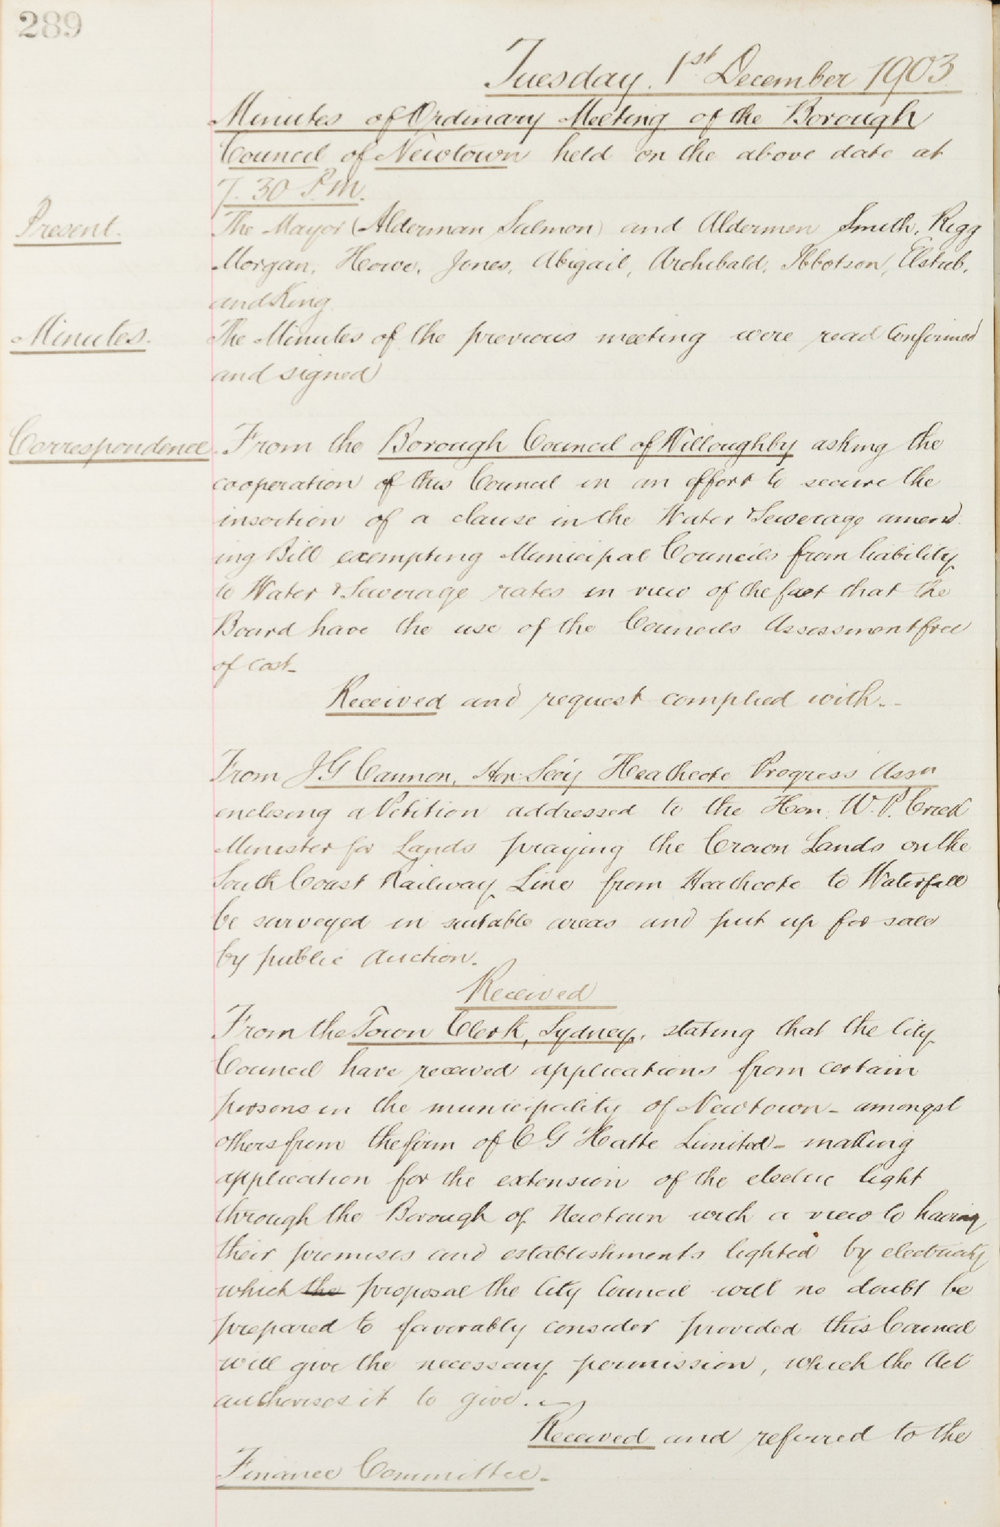 289
Tuesday. 1st December 1903
Minutes of Ordinary Meeting of the Borough
Council of Newtown held on the above date at
7.30 P.M.
Present.
The Mayor (Alderman Salmon) and Aldermen Smith, Rigg
Morgan, Howe, Jones, Abigail, Archibald, Ibbotson, Elstub,
and King
Minutes.
The Minutes of the previous meeting were read Confirmed
and signed
Correspondence.
From the Borough Council of Willoughby asking the
cooperation of this Council in an effort to secure the
insertion of a clause in the Water & Sewerage amend-
ing Bill exempting Municipal Councils from liability
to Water & Sewerage rates in view of the fact that the
Board have the use of the Councils Assessment free
of cost-
Received and request complied with.-
From J G Cannon, Hon. Secy Heathcote Progress Assn
enclosing a Petition addressed to the Hon. W. P. Crick
Minister for Lands praying the Crown Lands on the
South Coast Railway Line from Heathcote to Waterfall
be surveyed in suitable areas and put up for sale
by public auction.
Received
From the Town Clerk, Sydney, stating that the City
Council have received applications from certain
persons in the municipality of Newtown - amongst
others from the firm of C G Hatte Limited - making
application for the extension of the electric light
through the Borough of Newtown with a view to having
their premises and establishments lighted by electricity
which the proposal the City Council will no doubt be
prepared to favorably consider provided this Council
will give the necessary permission, which the Act
authorises it to give.
Received and referred to the
Finance Committee.-